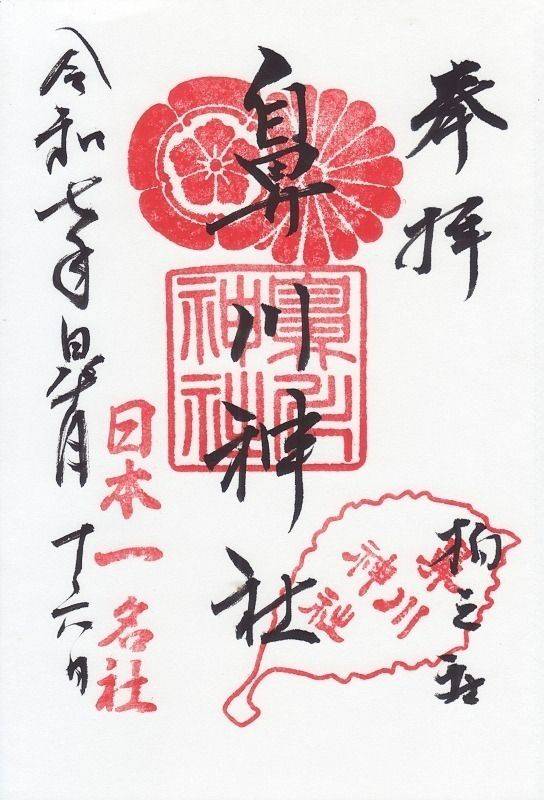 奉拝
柏之社
鼻川神社
鼻川神社
鼻川
神社
日本一名社
令和七年皐月十六日